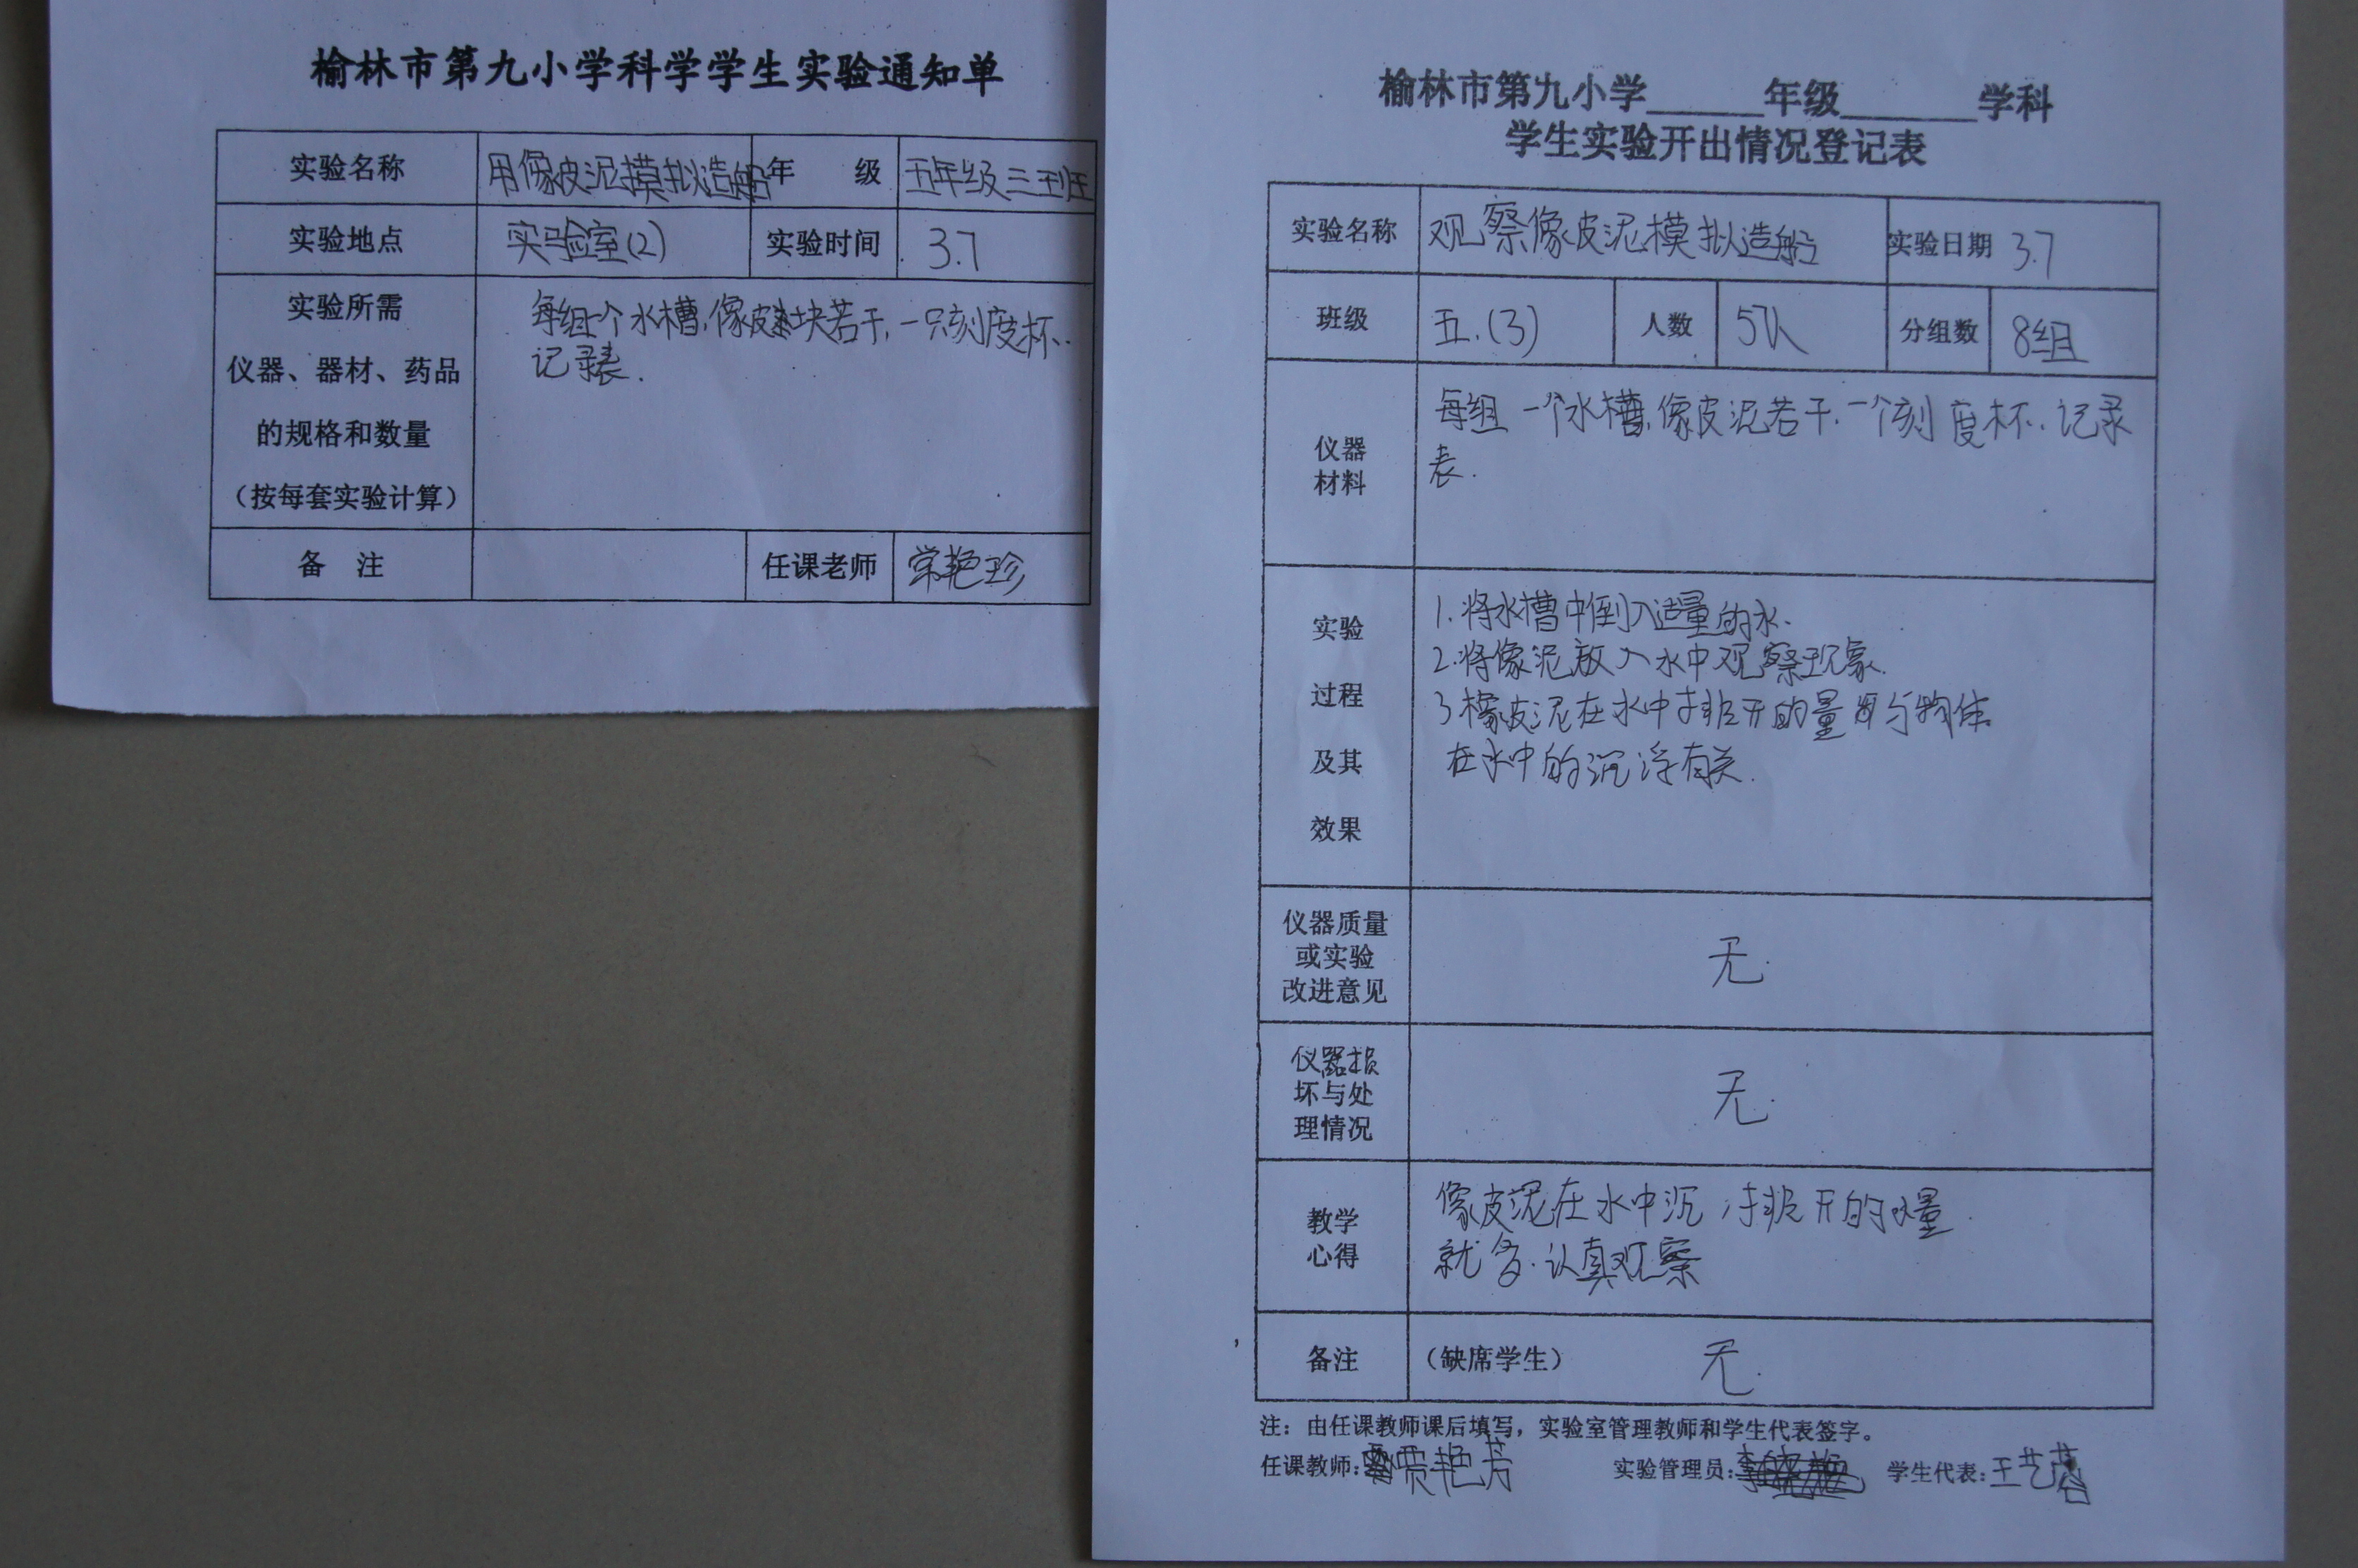 榆林市第九小学科学学生实验通知单
实验名称 用像皮泥摸拟造船 年 级 五年级三班
实验地点 实验室(2) 实验时间 3.7
实验所需
仪器、器材、药品
的规格和数量
（按每套实验计算）
每组一个水槽,像皮块若干,一只刻度杯.
记录表.
备 注 任课老师 常艳珍
榆林市第九小学______年级_______学科
学生实验开出情况登记表
实验名称 观察像皮泥模拟造船 实验日期 3.7
班级 五.(3) 人数 分组数 8组
仪器
材料
每组 一个水槽,像皮泥若干.一个刻度杯.记录
表.
实验
过程
及其
效果
1.将水槽中倒入适量的水.
2.将像泥放入水中观察现象.
3橡皮泥在水中排开的量 与物体
在水中的沉浮有关.
仪器质量
或实验
改进意见
无.
仪器损
坏与处
理情况
无.
教学
心得
像皮泥在水中沉 排开的 量.
就多.认真观察
备注 （缺席学生） 无.
注：由任课教师课后填写，实验室管理教师和学生代表签字。
任课教师: 贾艳芳 实验管理员: 学生代表: 王艺